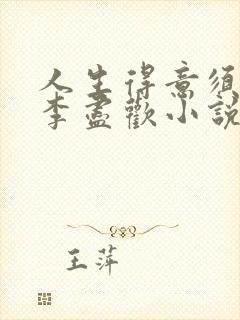 人生得意須
李盡歡小說
王萍